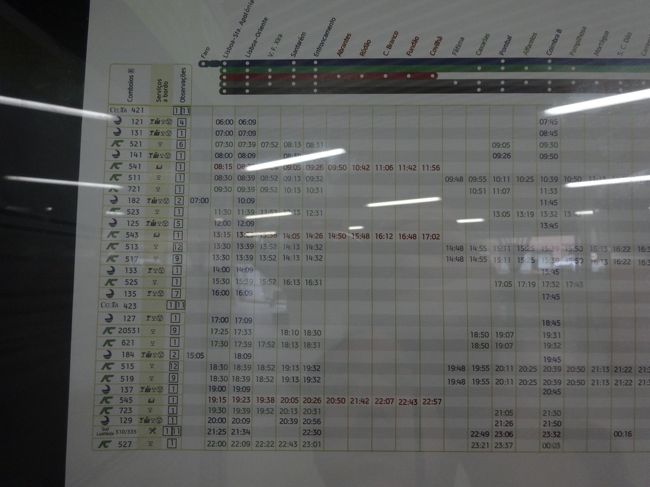 Comboios Serviços a bordo Observações Faro Lisboa-Sta. Apolónia Lisboa-Oriente V. F. Xira Santarém Entroncamento Abrantes Ródão C. Branco Fundão Covilhã Fátima Caxarias Pombal Alfarelos Coimbra B Pampilhosa Mortágua S. C. Dão
421 1 11
121 4 06:00 06:09 07:45
131 1 07:00 07:09 08:45
521 6 07:30 07:39 07:52 08:13 08:31 09:05 09:30
141 1 08:00 08:09 09:26 09:50
541 1 09:05 09:26 09:50 10:42 11:06 11:42 11:56
511 1 08:30 08:39 08:52 09:13 09:32 09:48 09:55 10:11 10:25 10:39 10:50
721 1 09:30 09:39 09:52 10:13 10:31 10:51 11:07 11:33
182 2 07:00 10:09 11:45
523 1 11:30 11:39 12:13 12:31 13:05 13:19 13:32
125 5 12:00 12:09 13:45
543 1 13:15 14:05 14:26 14:50 15:48 16:12 16:48 17:02
513 12 13:30 13:39 13:52 14:13 14:32 14:48 14:55 15:11 15:25 15:39 15:50 16:13 16:22
517 9 13:30 13:39 13:52 14:13 14:32 14:48 14:55 15:11 15:25 15:39 16:13 16:22
133 1 14:00 14:09 15:45
525 1 15:30 15:39 15:52 16:13 16:31 17:05 17:19 17:32 17:43
135 7 16:00 16:09 17:45
423 1 11
127 1 17:00 17:09 18:45
20531 9 17:25 17:33 18:10 18:30 18:50 19:07 19:31
621 1 17:30 17:39 17:52 18:13 18:31 18:50 19:07 19:32
184 2 15:05 18:09 19:45
515 12 18:30 18:39 18:52 19:13 19:32 19:48 19:55 20:11 20:25 20:39 20:50 21:13 21:22
519 9 18:30 18:39 18:52 19:13 19:32 19:48 19:55 20:11 20:25 20:39 20:50 21:13 21:22
137 1 19:00 19:09 20:45
545 1 19:15 19:23 19:38 20:05 20:26 20:50 21:42 22:07 22:43 22:57
723 1 19:30 19:39 19:52 20:13 20:31 21:05 21:30
129 1 20:00 20:09 20:39 20:56 21:26 21:50
310/335 1 11 21:25 21:34 22:30 22:49 23:06 23:32 00:16
527 1 22:00 22:09 22:22 22:43 23:01 23:21 23:37 00:03